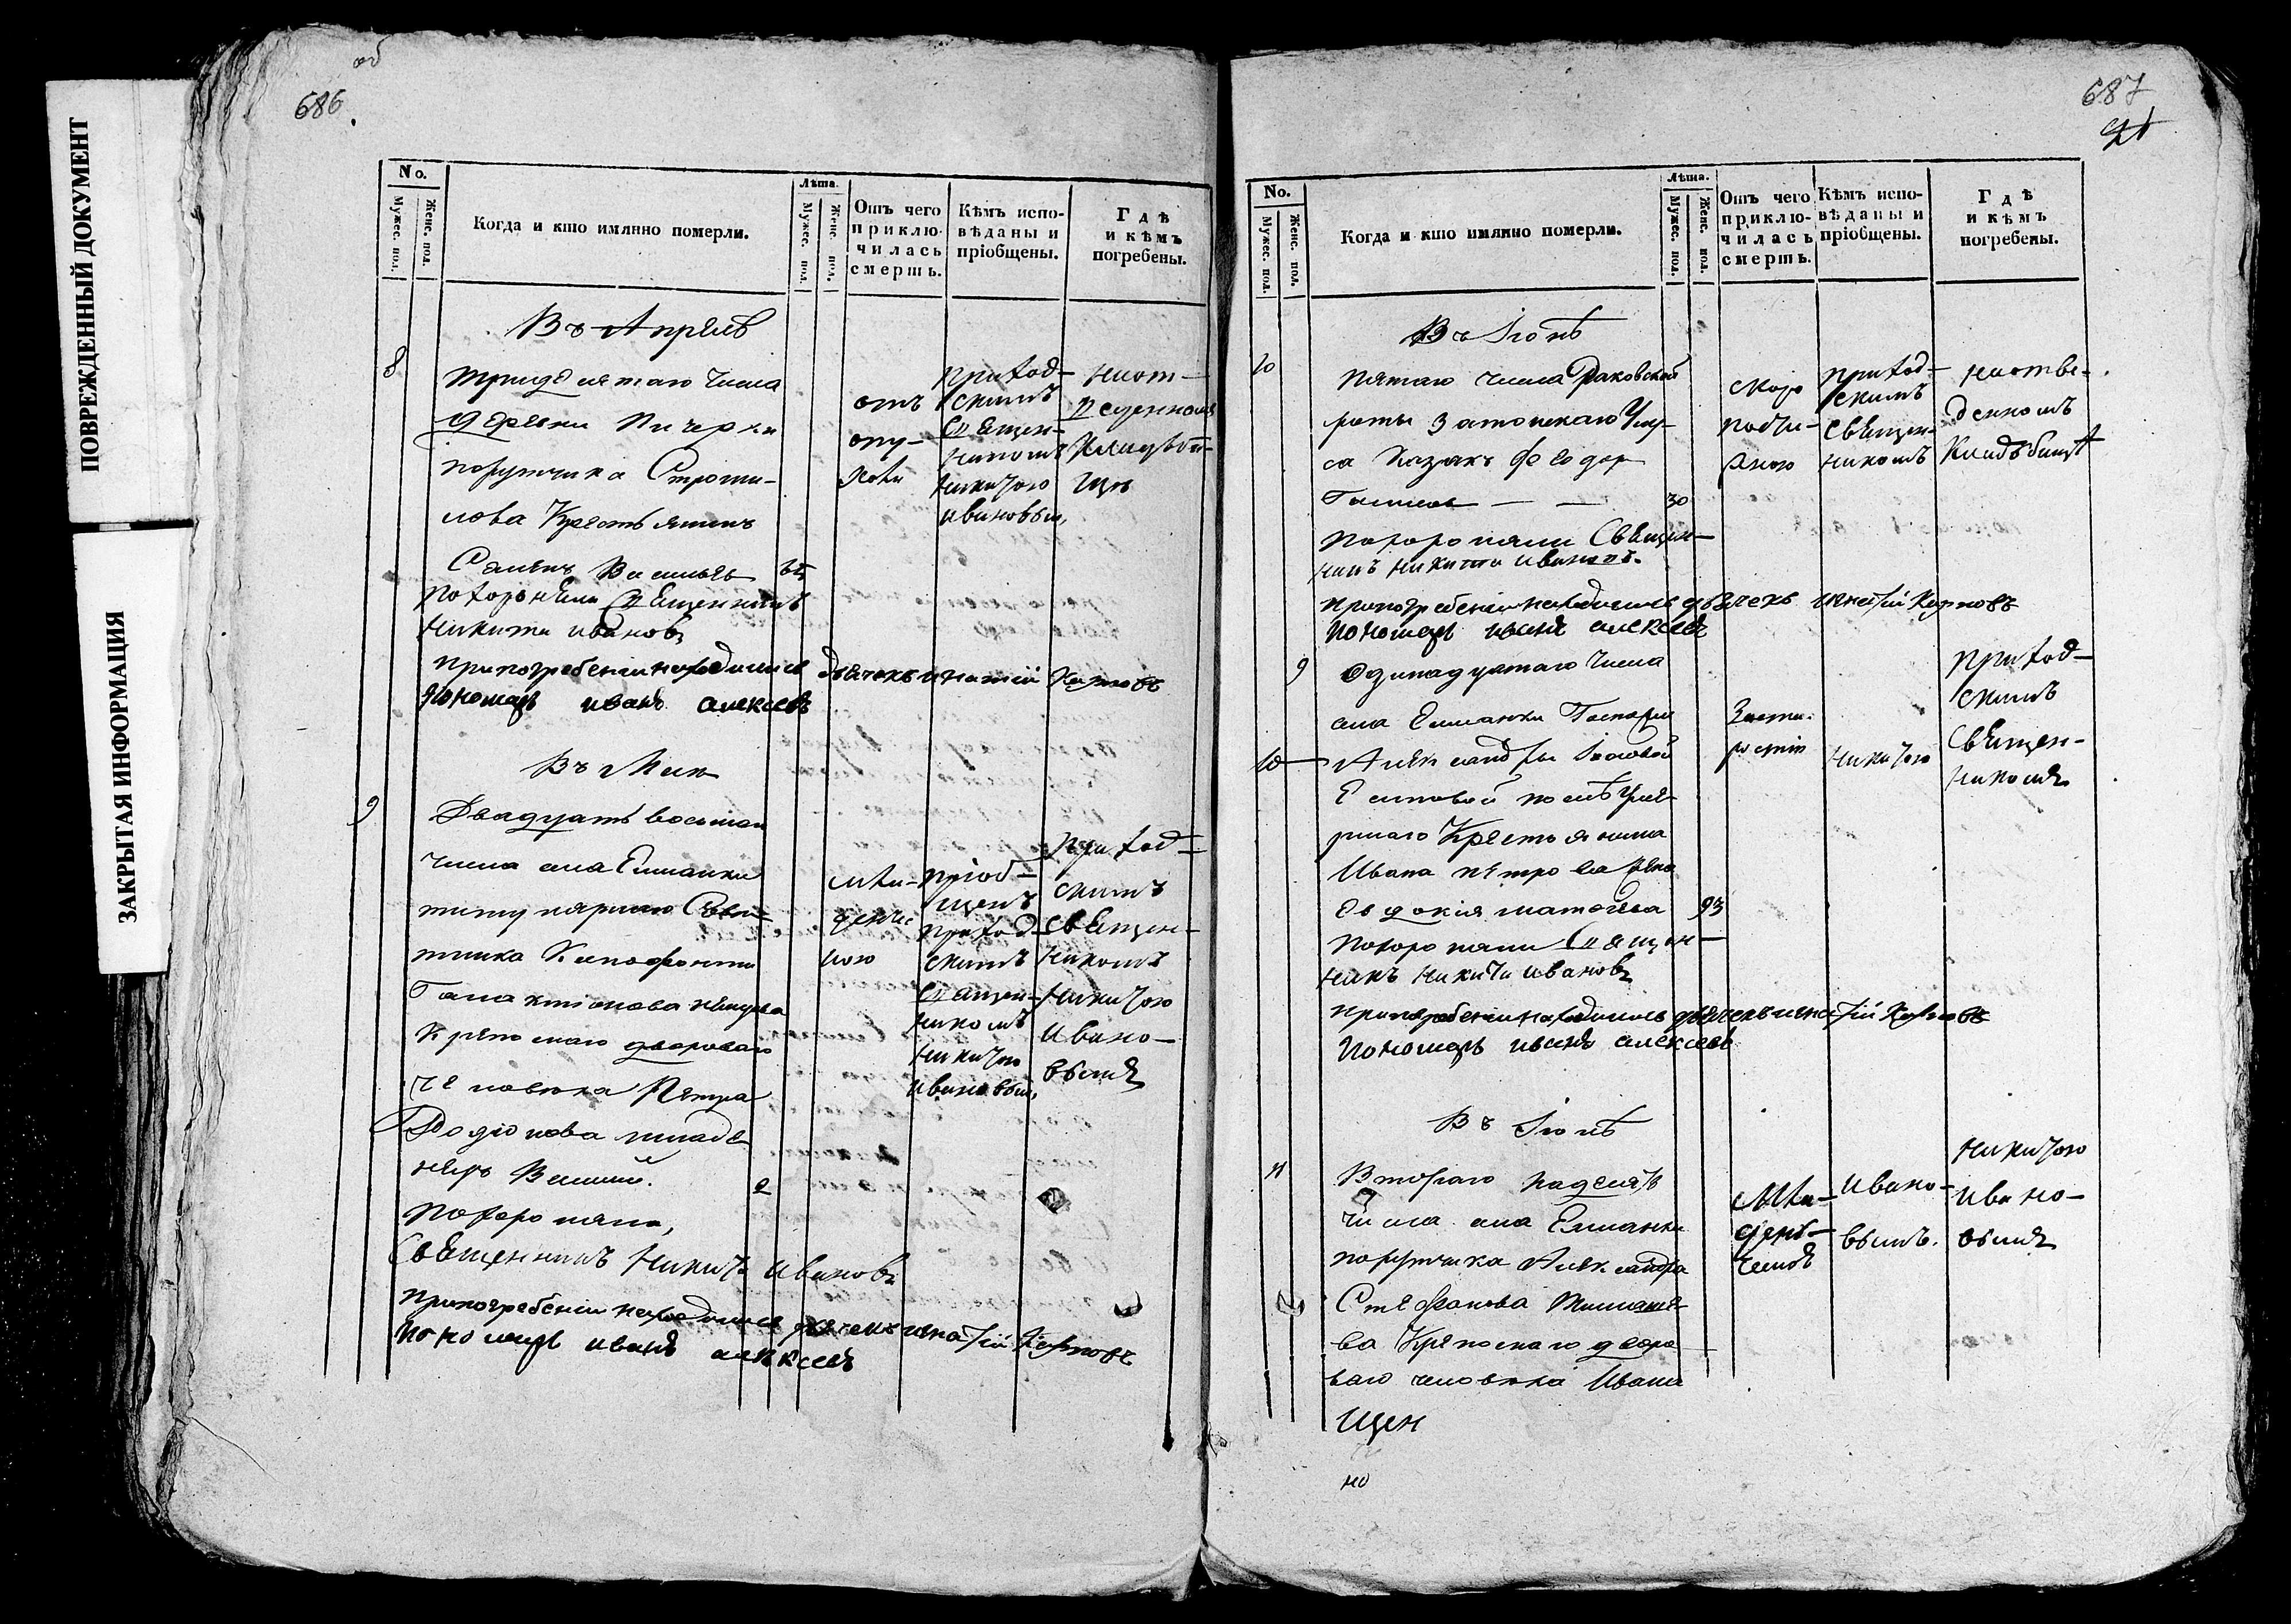 ПОВРЕЖДЕННЫЙ ДОКУМЕНТ
ЗАКРЫТАЯ ИНФОРМАЦИЯ
об
686
No.
Мужес. пол.
Женс. пол.
Когда и кто имянно померли.
Лѣта.
Мужес. пол.
Женс. пол.
Отъ чего приключилась смерть.
Кѣмъ исповѣданы и пріобщены.
Гдѣ и кѣмъ погребены.
Въ Апрелѣ
8
тридесятаго числа
деревни Пичерки
порутчика
лова Крестьянинъ
Семенъ Васильевъ
похоронели Священникъ
Никита Ивановъ
при погребеніи находились дьячекъ игнатій Карповъ
Пономарь иванъ алексеевъ
отъ
опу-
холи
приход-
скимъ
Священ-
никомъ
Никитою
ивановым
на от-
веденномъ
Кладъби-
щѣ
Въ Маи
9
Двадцать восьмаго
числа села Елшанки
титулярнаго Совѣ-
тника Ксенофонта
Галактіонова
Крепоснаго двороваго
человѣка Петра
Родіонова младе-
нецъ Василій.
2
похоронялъ
Священникъ Никита Ивановъ
при погребеніи находились дьячекъ игнатій Карповъ
Пономарь иванъ алексеевъ
мла-
денче
ною
пріоб-
щенъ
приход-
скимъ
Священ-
никомъ
Никитою
ивановым
приход-
скимъ
священ-
никомъ
Никитою
Ивано-
вымъ
687
No.
Мужес. пол.
Женс. пол.
Когда и кто имянно померли.
Лѣта.
Мужес. пол.
Женс. пол.
Отъ чего приключилась смерть.
Кѣмъ исповѣданы и пріобщены.
Гдѣ и кѣмъ погребены.
Въ Іюнѣ
10
Пятаго числа Раковской
роты Затонскаго Улу-
са Казакъ Феодоръ
30
похороняли Священ-
никъ Никита Ивановъ.
при погребеніи находились дьячекъ игнатій Карповъ
Пономарь иванъ алексеевъ
скоро
пости-
жною
приход-
скимъ
Священ-
никомъ
на отве-
денномъ
Кладъбищѣ
9
Одинадцатаго числа
села Елшанки Госпожи
10
Александры
Есиповой послѣ умер-
шаго Крестьянина
Ивана Петрова жена
Евдокія матвѣева
93
похороняли Священ-
никъ Никита Ивановъ
при погребеніи находились дьячекъ игнатій Карповъ
Пономарь иванъ алексеевъ
За ста-
ростію
Никитою
приход-
скимъ
Священ-
никомъ
Въ Іюнѣ
11
Втораго надесять
числа села Елшанки
порутчика Александра
Стефанова
ва Крепоснаго дворо-
ваго человѣка Ивана
щен
но
Мла-
день-
чемъ
Ивано-
вымъ.
Никитою
Ивано-
вымъ